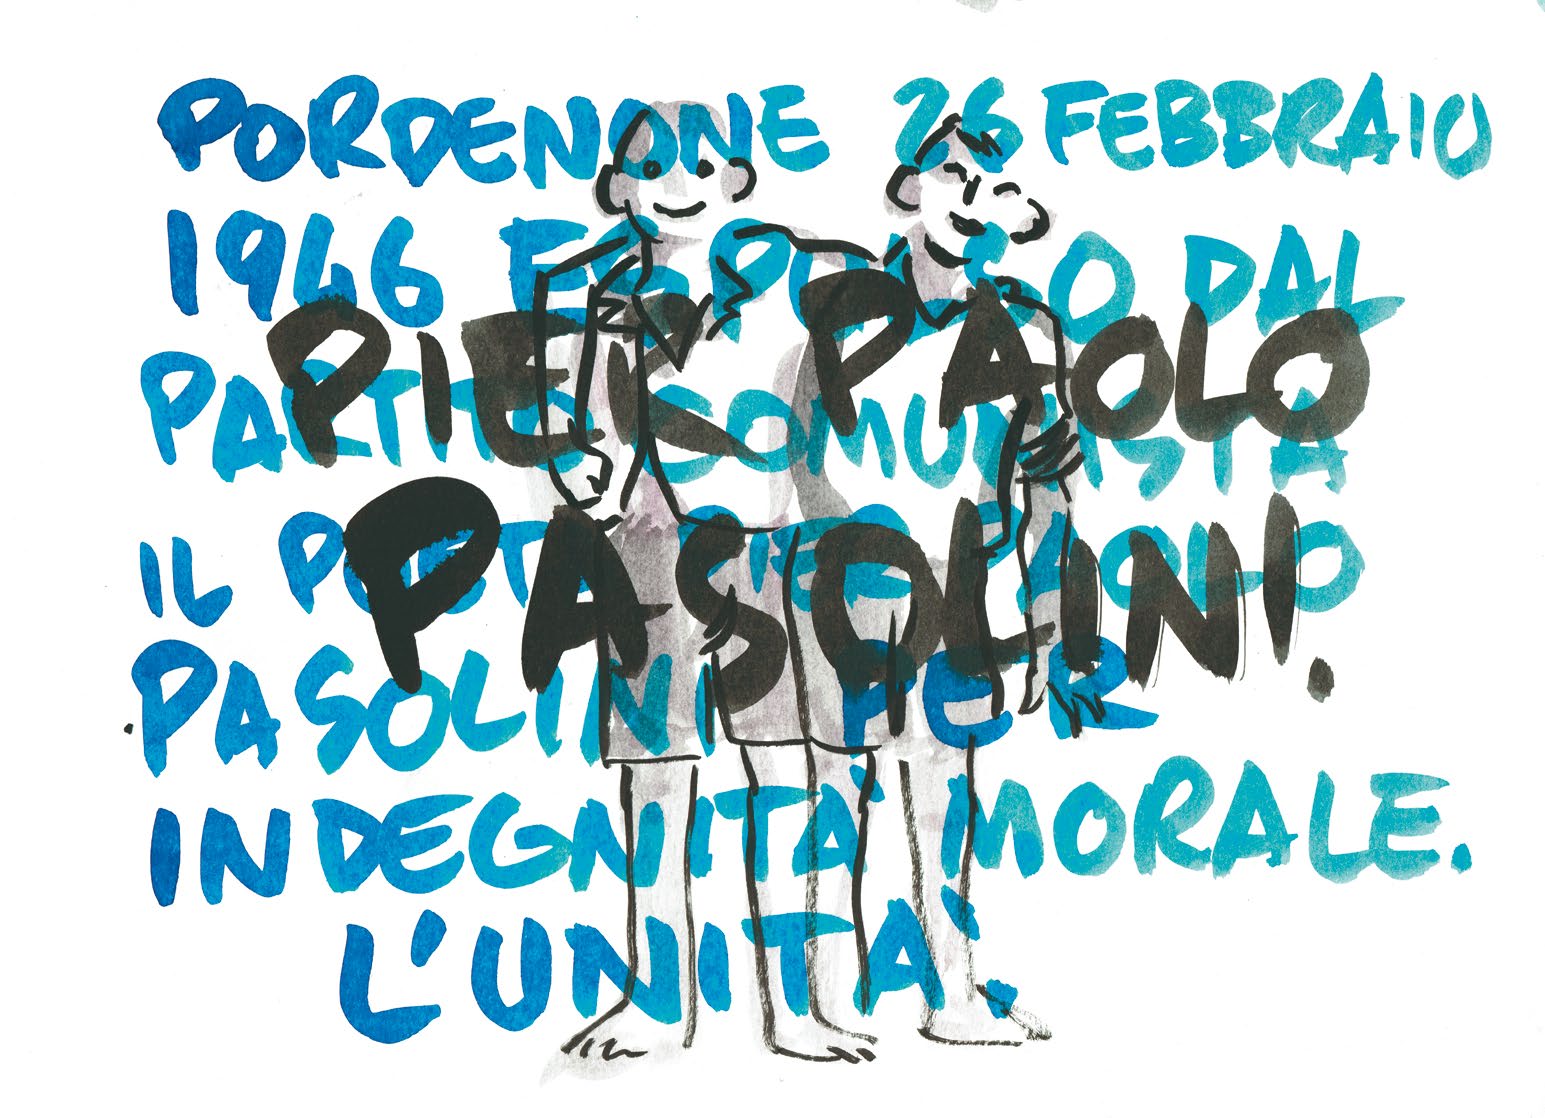 PORDENONE 26 FEBBRAIO
1946 ESPULSO DAL
PARTITO COMUNISTA
IL POETA PIER PAOLO
PASOLINI PER
INDEGNITA' MORALE.
L'UNITA'.
PIER PAOLO
PASOLINI.